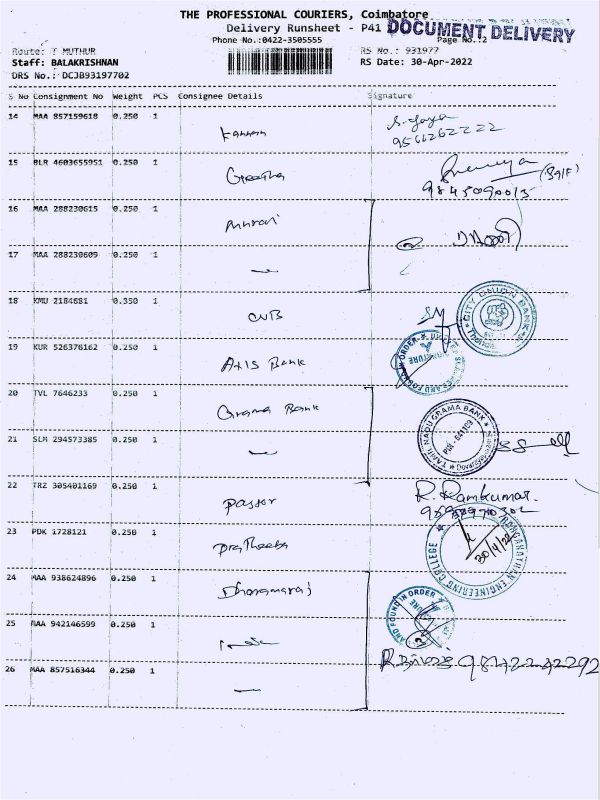 THE PROFESSIONAL COURIERS, Coimbatore
Delivery Runsheet - P41 DOCUMENT DELIVERY
Phone No.:0422-3505555 Page No.:2
Route: T MUTHUR RS No.: 931977
Staff: BALAKRISHNAN RS Date: 30-Apr-2022
DRS No.: DCJB93197702
S No Consignment No Weight PCS Consignee Details Signature
14 MAA 857159618 0.250 1 Kannan
15 BLR 4603655951 0.250 1 Geetha
9845090015
16 MAA 288230615 0.250 1 Murali
17 MAA 288230609 0.250 1 —
18 KMU 2184681 0.350 1 CUB CITY UNION BANK
19 KUR 526376162 0.250 1 Axis Bank
20 TVL 7646233 0.250 1 Grama Bank TAMIL NADU GRAMA BANK
21 SLM 294573385 0.250 1 —
22 TRZ 305401169 0.250 1 Paster R. Ramkumar.
23 PDK 1728121 0.250 1 Pratheeba RANGANATHAN ENGINEERING COLLEGE
30/4/22
24 MAA 938624896 0.250 1 Dharamaraj
AND FOUND IN ORDER
25 MAA 942146599 0.250 1
26 MAA 857516344 0.250 1 —